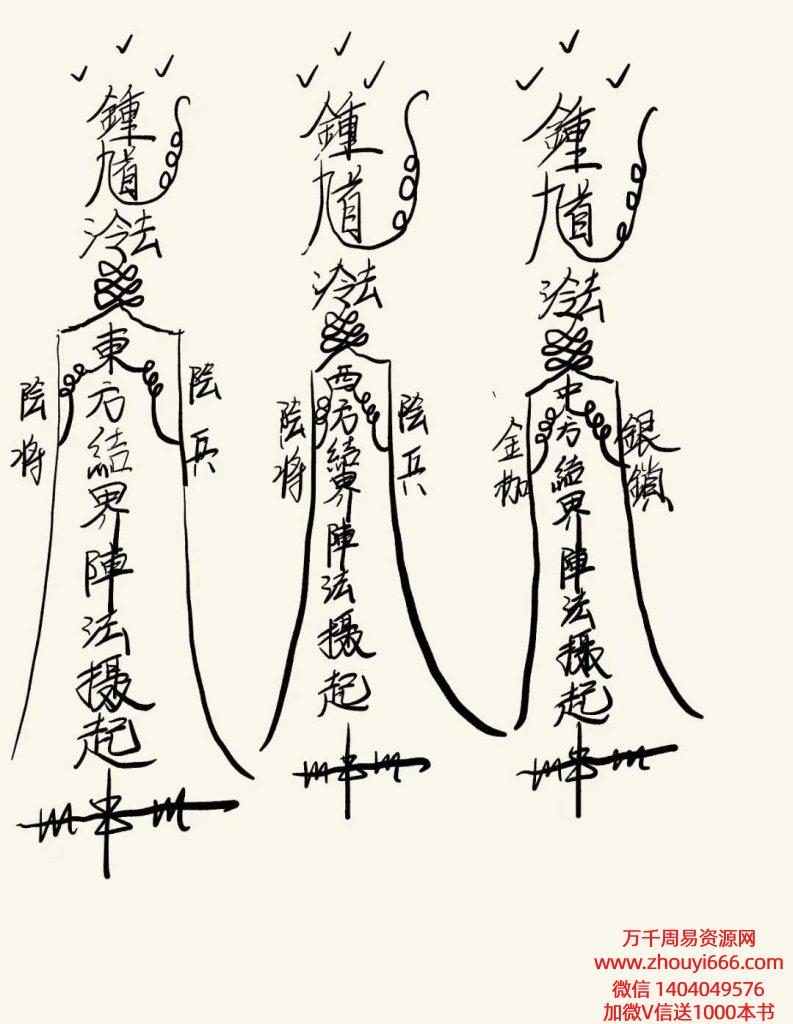 鍾馗
冷法
東方結界陣法攝起
陰將
陰兵
鍾馗
冷法
西方結界陣法攝起
陰將
陰兵
鍾馗
冷法
中方結界陣法攝起
金枷
銀鎖
万千周易资源网
www.zhouyi666.com
微信 1404049576
加微V信送1000本书